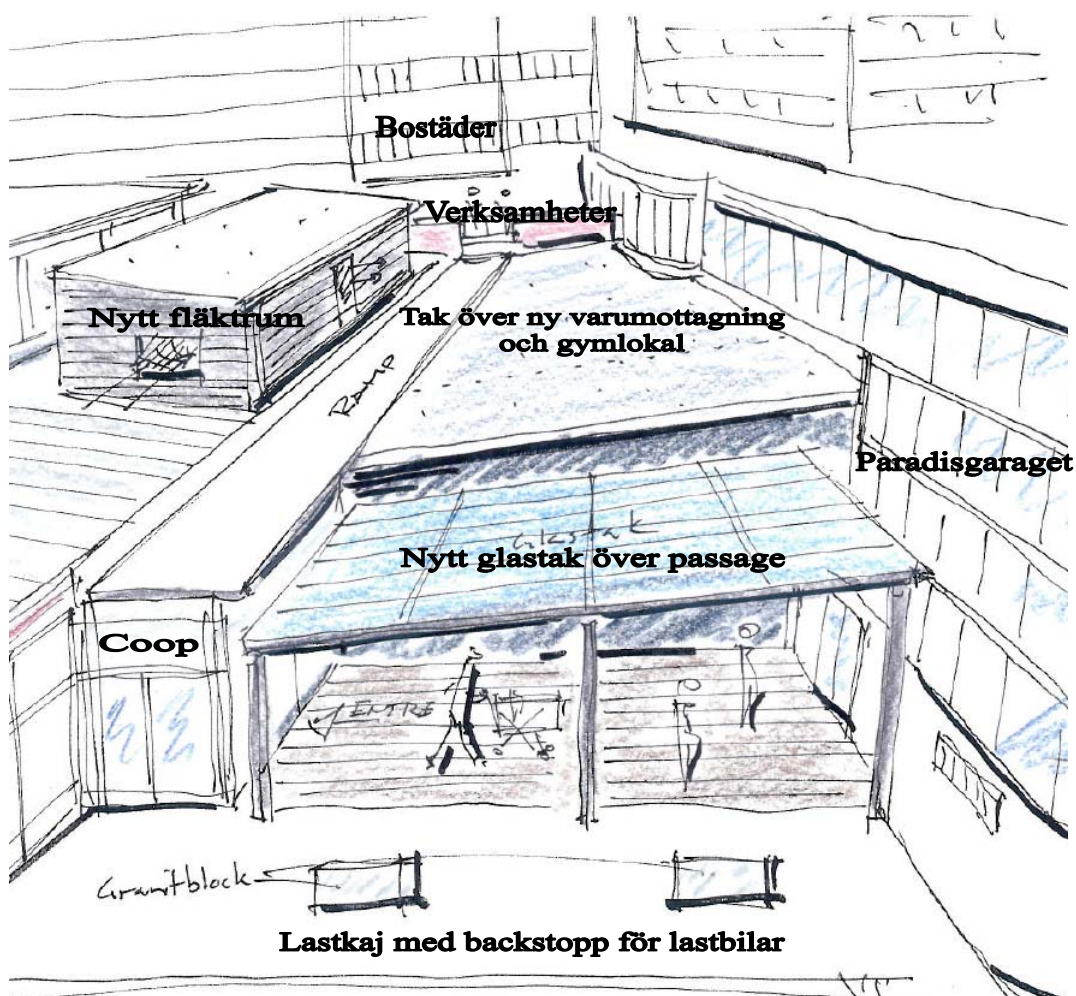 Bostäder
Verksamheter
Nytt fläktrum
Tak över ny varumottagning
och gymlokal
RAMP
Paradisgaraget
Glastak
Nytt glastak över passage
Coop
ENTRE
Granitblock
Lastkaj med backstopp för lastbilar